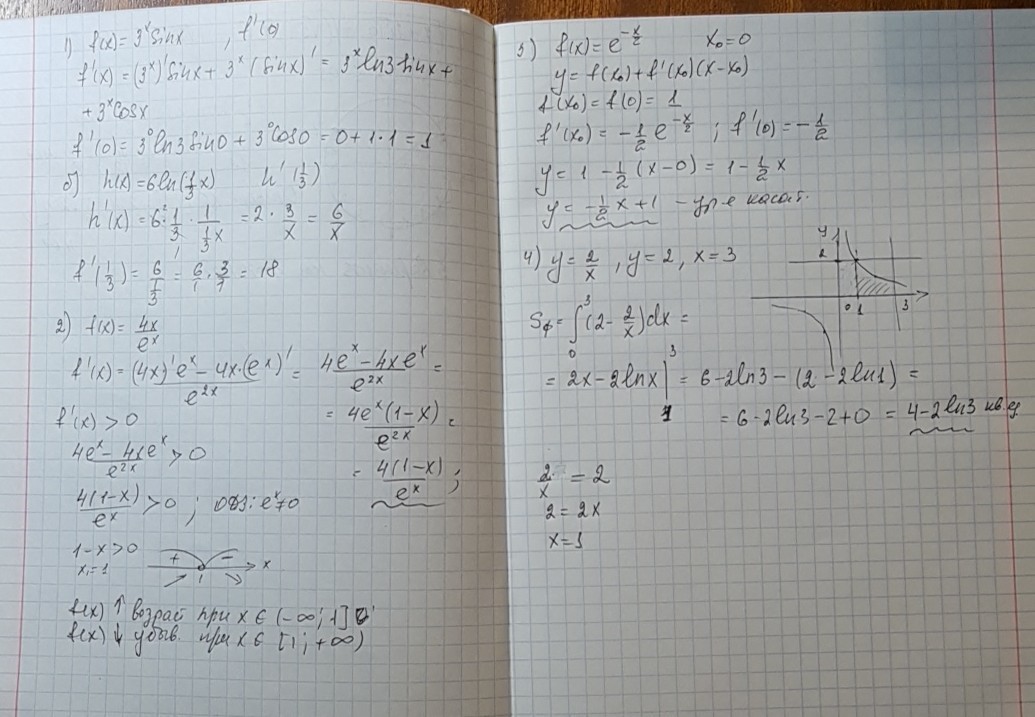 1) f(x) = 3^x sinx , f'(0)
f'(x) = (3^x)' sinx + 3^x (sinx)' = 3^x ln3 sinx +
+ 3^x cosx
f'(0) = 3^0 ln3 sin0 + 3^0 cos0 = 0 + 1·1 = 1
б) h(x) = 6ln(1/3 x) h'(1/3)
h'(x) = 6 · 1/3 · 1/(1/3 x) = 2 · 3/x = 6/x
f'(1/3) = 6/(1/3) = 6/1 · 3/1 = 18
2) f(x) = 4x/e^x
f'(x) = ((4x)' e^x - 4x·(e^x)')/e^2x = (4e^x - 4xe^x)/e^2x =
= 4e^x(1-x)/e^2x =
= 4(1-x)/e^x ;
f'(x) > 0
(4e^x - 4xe^x)/e^2x > 0
4(1-x)/e^x > 0 ; ОДЗ: e^x ≠ 0
1-x > 0
x = 1
+ - x
1
f(x) ↑ возраст при x ∈ (-∞; 1]
f(x) ↓ убыв. при x ∈ [1; +∞)
3) f(x) = e^(-x/2) x₀ = 0
y = f(x₀) + f'(x₀)(x - x₀)
f(x₀) = f(0) = 1
f'(x₀) = -1/2 e^(-x/2) ; f'(0) = -1/2
y = 1 - 1/2 (x - 0) = 1 - 1/2 x
y = -1/2 x + 1 - ур-е касат.
4) y = 2/x , y = 2 , x = 3
y
2
0 1 3
Sф = ∫₀³ (2 - 2/x) dx =
= 2x - 2lnx |₁³ = 6 - 2ln3 - (2 - 2ln1) =
= 6 - 2ln3 - 2 + 0 = 4 - 2ln3 кв.ед.
2/x = 2
2 = 2x
x = 1